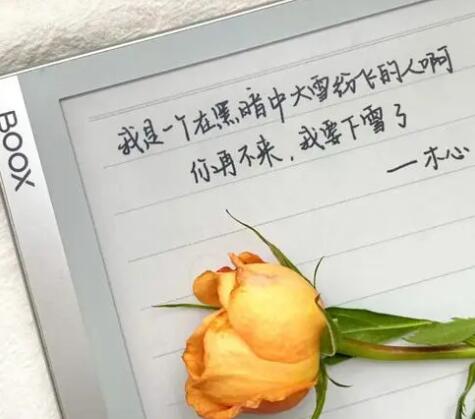 BOOX
我是一个在黑暗中大雪纷飞的人啊
你再不来，我要下雪了
——木心